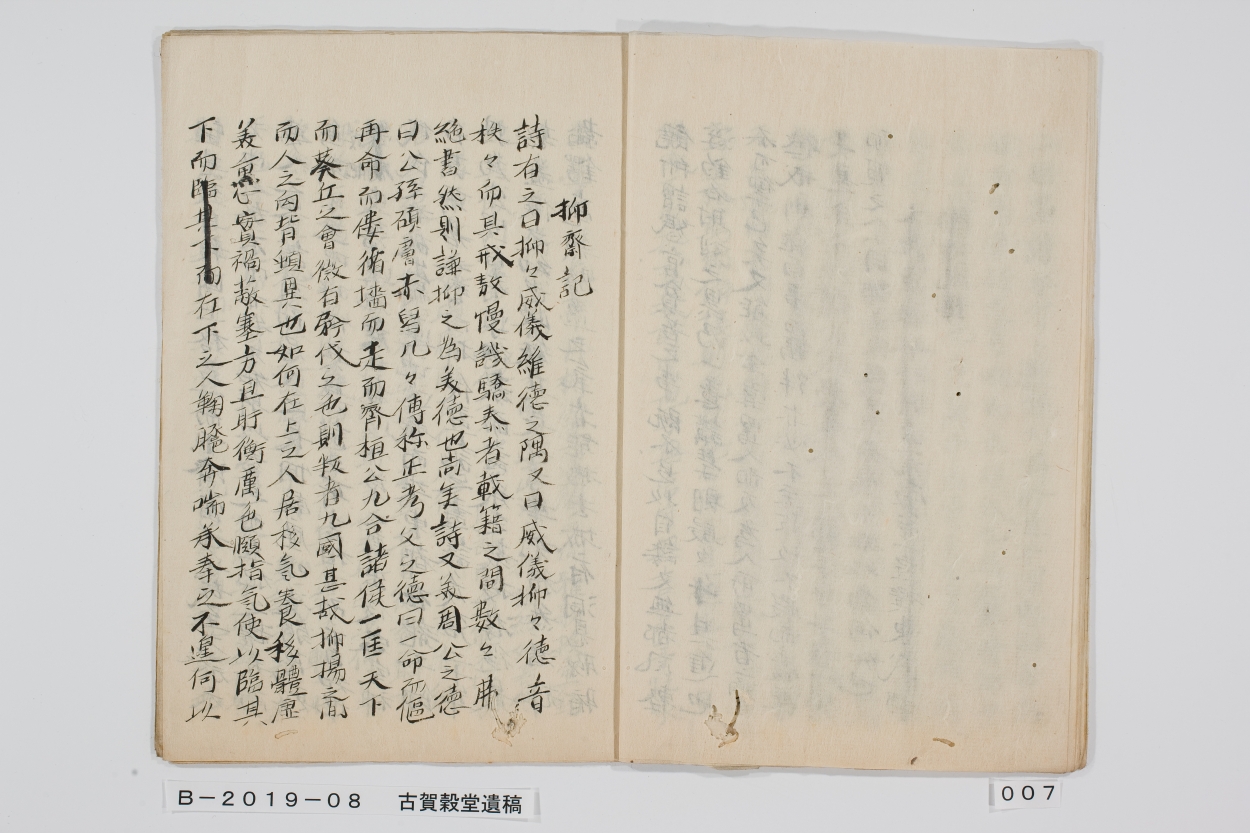 抑齋記
詩有之曰抑々威儀維德之隅又曰威儀抑々德音
秩々而其戒敖慢譏驕泰者載籍之間數々弗
絕書然則謙抑之為美德也尚矣詩又美周公之德
曰公孫碩膚赤舄几々傳称正考父之德曰一命而傴
再命而僂循墻而走而齊桓公九合諸侯一匡天下
而葵丘之會微有矜伐之也則叛者九國甚哉抑揚之間
而人之向背頓異也如何在上之人居移氣養移體虛
美熏心實禍蔽塞方且盱衡厲色頤指氣使以臨其
下而臨其下而在下之人鞠䐡奔喘承奉之不遑何以
B－2019－08　古賀穀堂遺稿
007